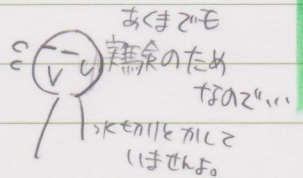 あくまでも
実験のため
なので、、
水切りとかして
いませんよ。